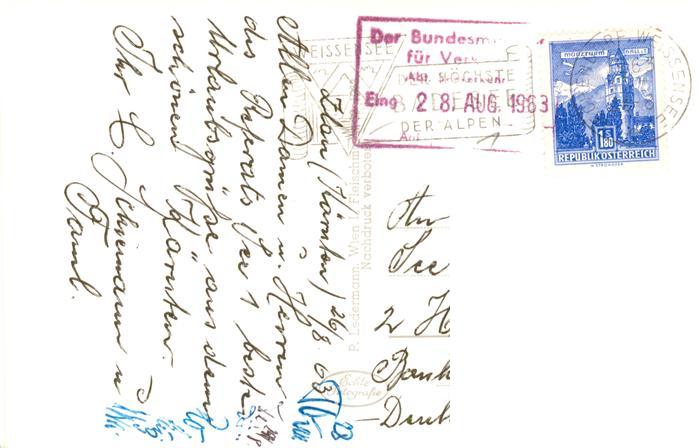 Zlan/Kärnten/26/8. 63
Allen Damen u. Herren
das Referats Ver 1 beste
Urlaubsgrüße aus dem
schönen Kärnten.
Ihr C. u
Faml.
P. Ledermann, Wien I, Fleischm
Nachdruck verboten
Echte Fotografie
WEISSENSEE
DER HÖCHSTE
BADESEE
DER ALPEN
Der Bundesm
für Ver
Eing 28. AUG. 1963
WEISSENSEE
MÜNZTURM HALL I.T.
1 S 80
REPUBLIK ÖSTERREICH
An
See
2 H
Bank